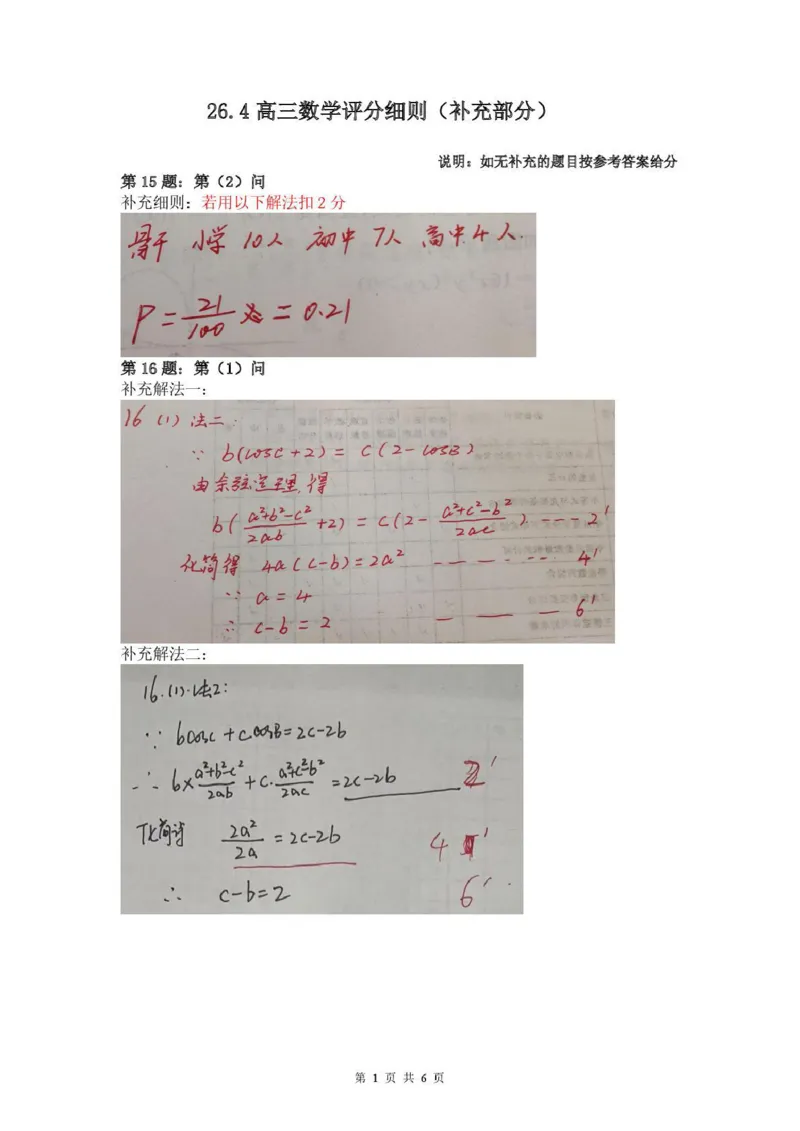 26.4高三数学评分细则（补充部分）
说明：如无补充的题目按参考答案给分
第 15 题：第（2）问
补充细则：若用以下解法扣 2 分
骨干 小学 10人 初中 7人 高中 4人.
P = 21/100 = 0.21
第 16 题：第（1）问
补充解法一：
16 (1) 法二：
∵ b(cosC+2) = c(2-cosB)
由余弦定理,得
b( (a²+b²-c²)/2ab +2) = c(2- (a²+c²-b²)/2ac ) --- 2'
化简得 4a(c-b)=2a² ------ 4'
∵ a=4
∴ c-b=2 --- 6'
补充解法二：
16.(1).法2:
∵ bcosC+ccosB=2c-2b
∴ b× (a²+b²-c²)/2ab + c· (a²+c²-b²)/2ac =2c-2b 2'
化简得 2a²/2a =2c-2b 4'
∴ c-b=2 6'
第 1 页 共 6 页